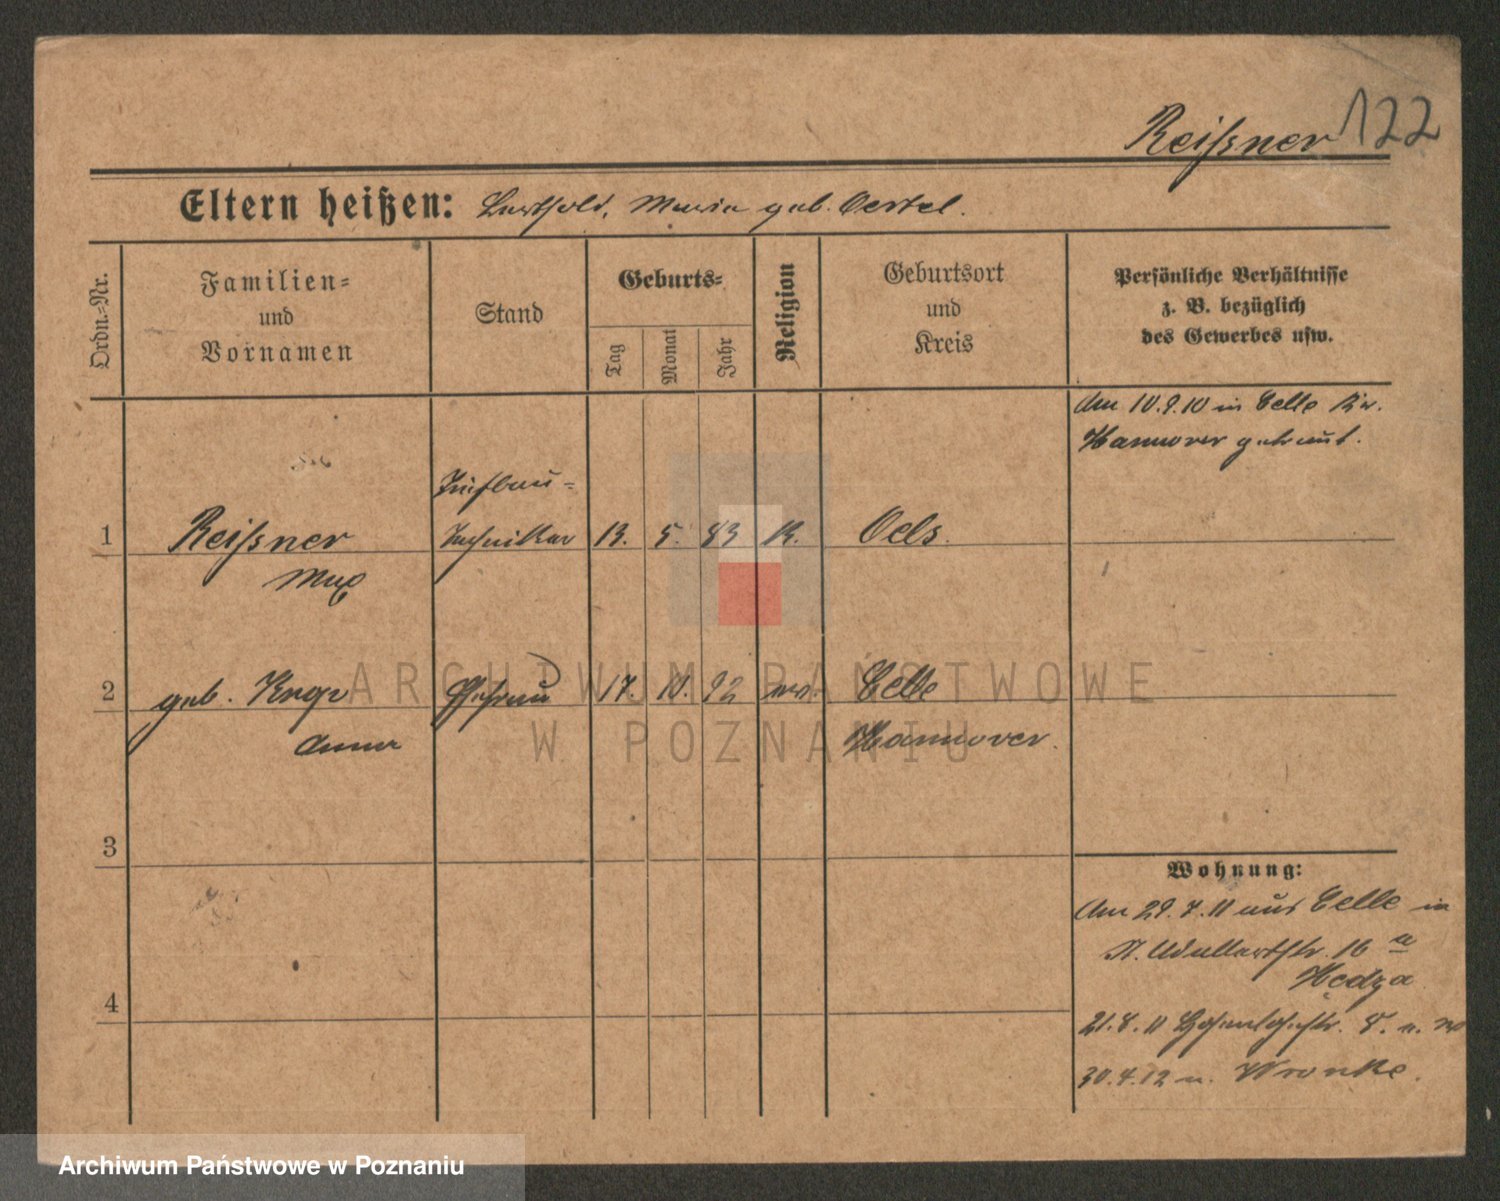 Reißner 122
Eltern heißen: Berthold, Maria geb. Oertel.
Ordn.-Nr.
Familien-
und
Vornamen
Stand
Geburts-
Tag
Monat
Jahr
Religion
Geburtsort
und
Kreis
Persönliche Verhältnisse
z. B. bezüglich
des Gewerbes usw.
Am 10.9.10 in Celle Kr.
Hannover getraut.
1
Reißner
Max
Tiefbau-
Techniker
13. 5. 83 K. Oels.
2
geb.
Anna
Ehefrau
17. 10. 92 ev. Celle
Hannover.
3
4
Wohnung:
Am 29.7.11 aus Celle in
St. Adalbertstr. 16 a
Hędza
21.8.11 Hohenlohestr. 8.
30.4.12 n. Wronke.
ARCHIWUM PAŃSTWOWE
W POZNANIU
Archiwum Państwowe w Poznaniu